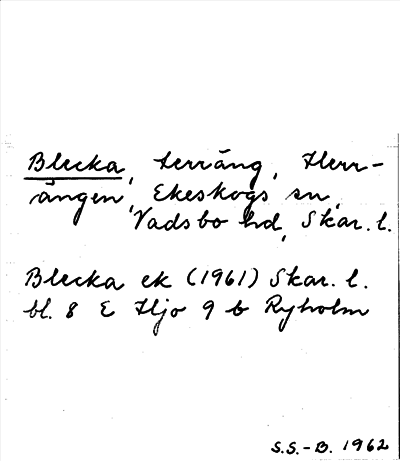 Blecka, terräng, Herr-
ängen, Ekeskogs sn,
Vadsbo hd, Skar. l.
Blecka ek (1961) Skar. l.
bl. 8 E Hjo 9 b Ryholm
S.S.-B. 1962